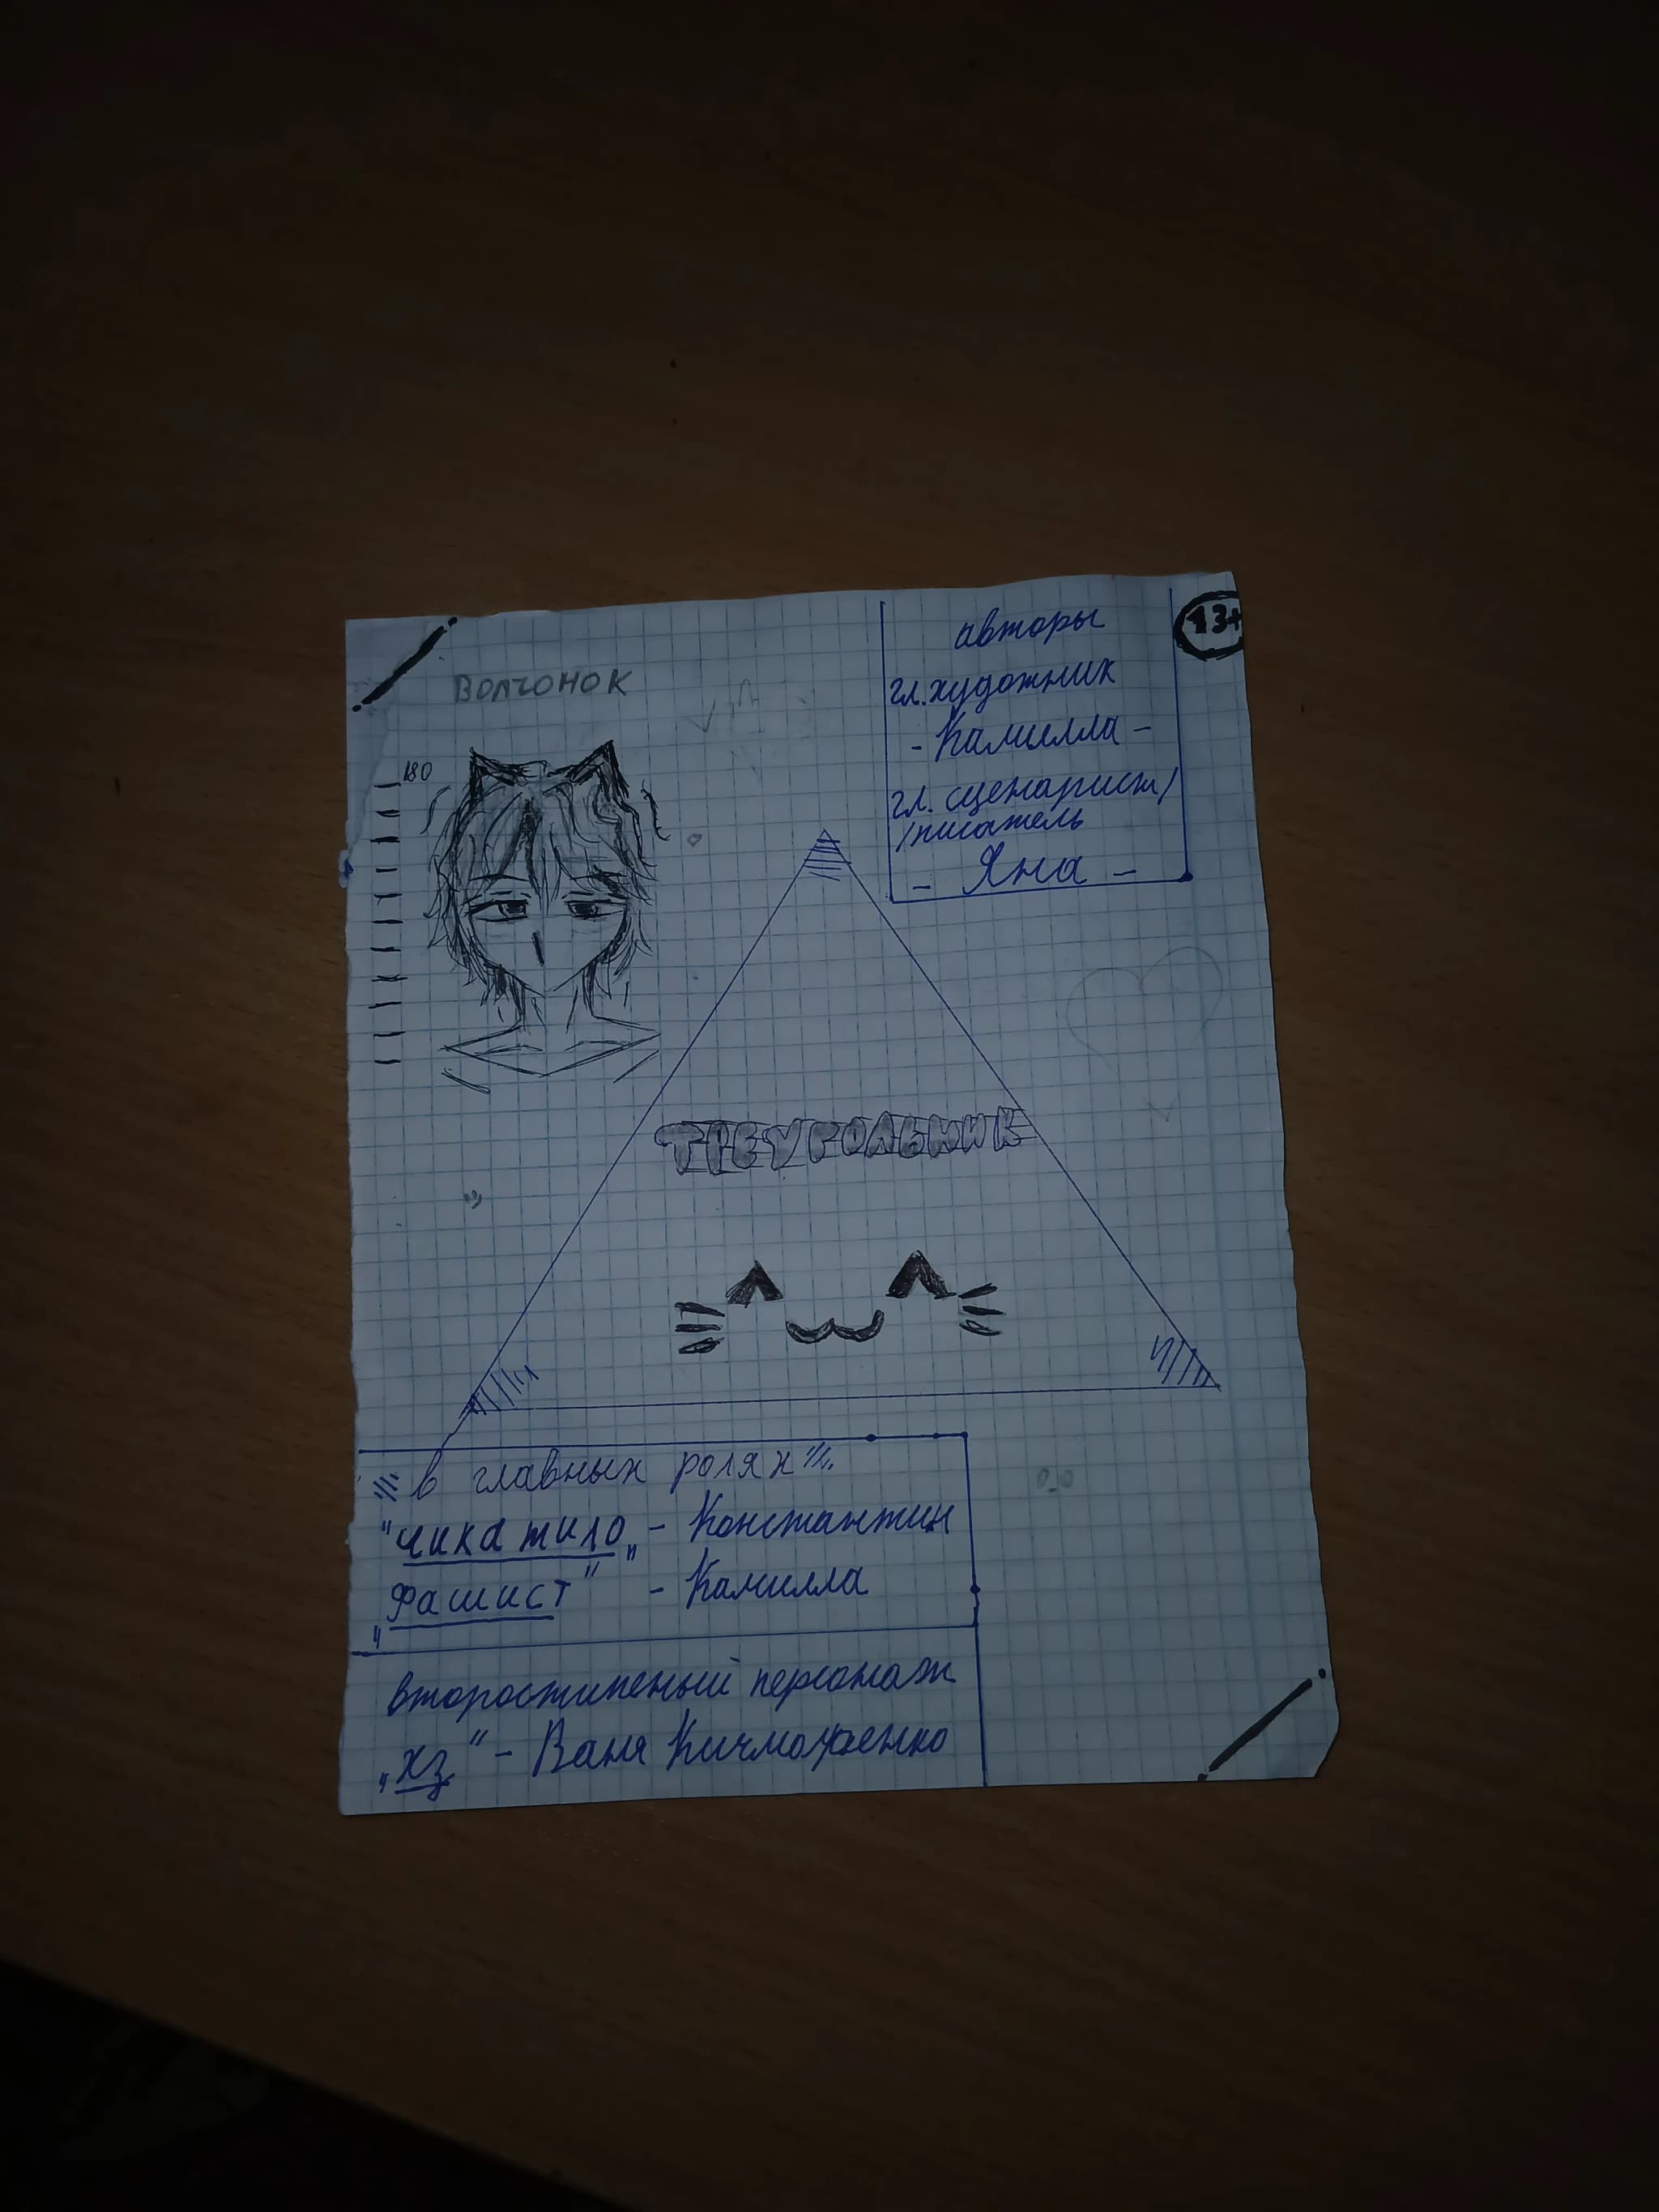 волчонок
180
авторы
гл. художник
- Камилла -
гл. сценарист/
/писатель
- Яна -
13+
ТРЕУГОЛЬНИК
в главных ролях
"чикатило„ - Константин
„фашист" - Камилла
второстипеный персонаж
„хз" - Ваня
0_0